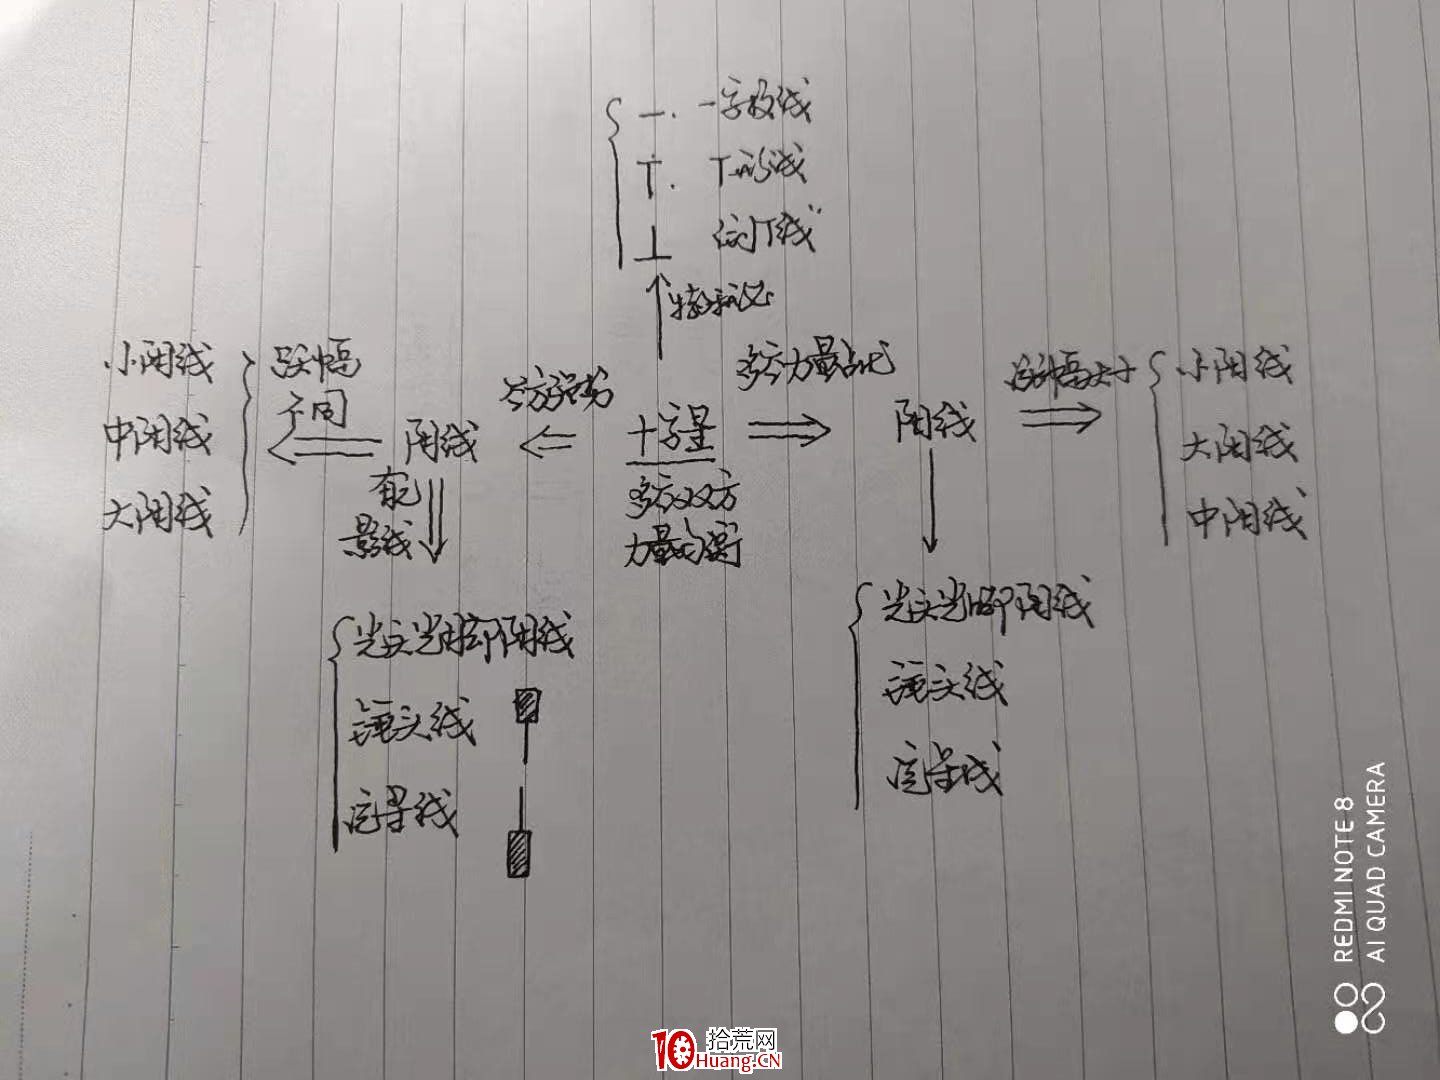 一. 一字板线
T. T形线
⊥ 倒T线
特殊状况
小阴线
中阴线
大阴线
跌幅
不同
阴线
有无
影线
空方强势
十字星
多空双方
力量均衡
多空力量占比
阳线
涨幅大小
小阳线
大阳线
中阳线
光头光脚阴线
锤头线
流星线
光头光脚阳线
锤头线
流星线
REDMI NOTE 8
AI QUAD CAMERA
10 拾荒网
Huang.CN